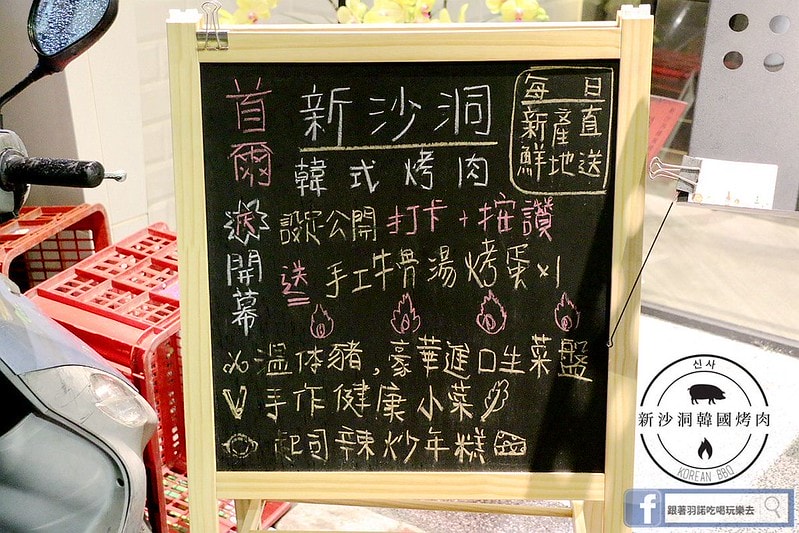 首爾
新沙洞
韓式烤肉
每日
新鮮
產地
直送
送
開幕
設定公開打卡+按讚
送手工牛骨湯烤蛋x1
溫体豬,豪華進口生菜盤
手作健康小菜
起司辣炒年糕
신사
新沙洞韓國烤肉
KOREAN BBQ
f 跟著羽諾吃喝玩樂去